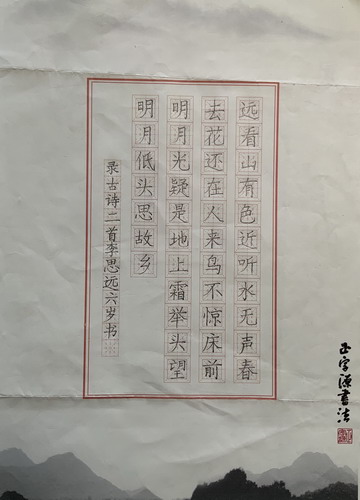 远看山有色近听水无声春
去花还在人来鸟不惊床前
明月光疑是地上霜举头望
明月低头思故乡
录古诗二首李思远六岁书
正字源書法